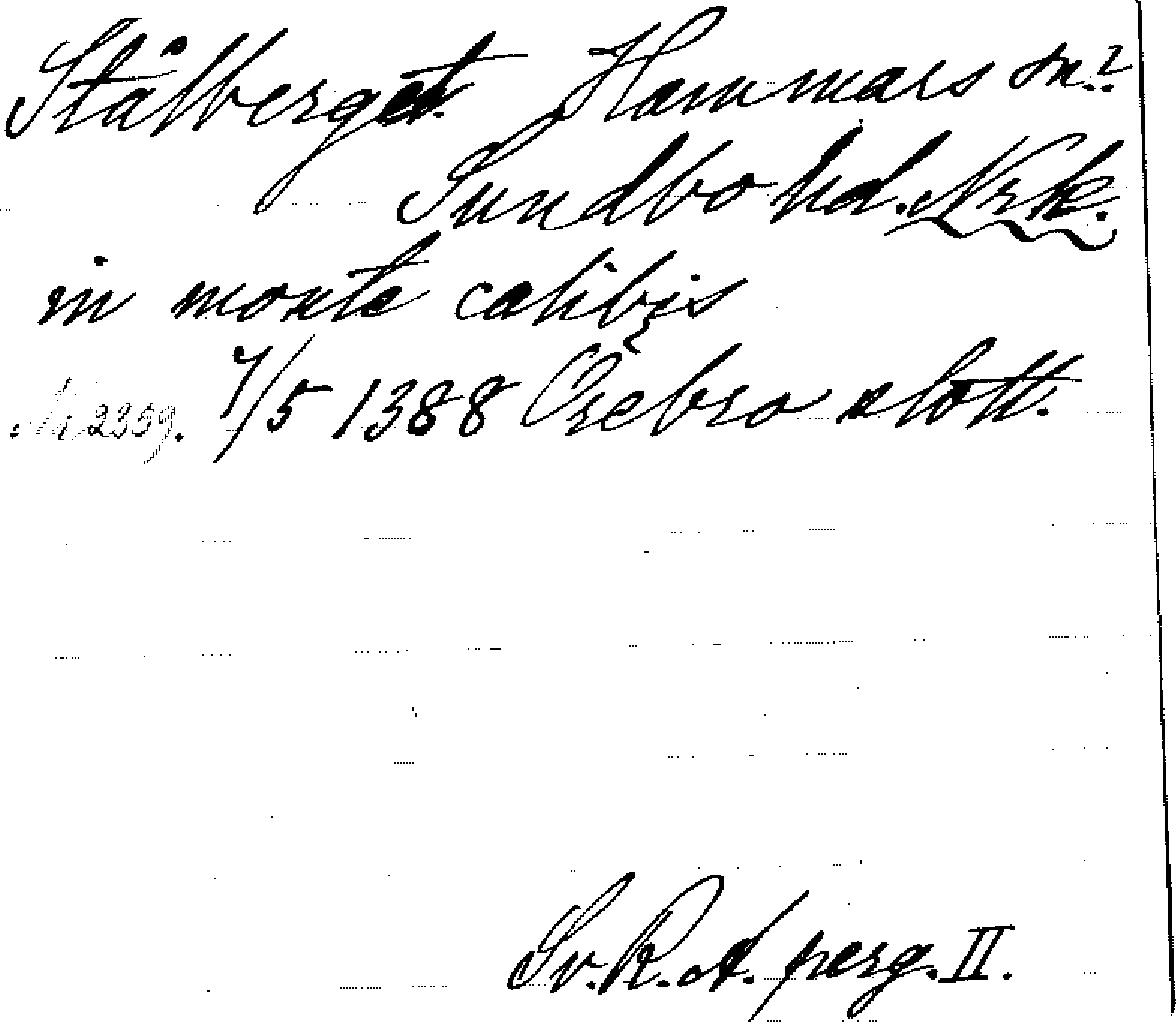 Stålberget. Hammars sn.?
Sundbo hd. Nrk.
in monte calibis
№ 2359. 7/5 1388 Örebro slott.
Sv. R. A. perg. II.